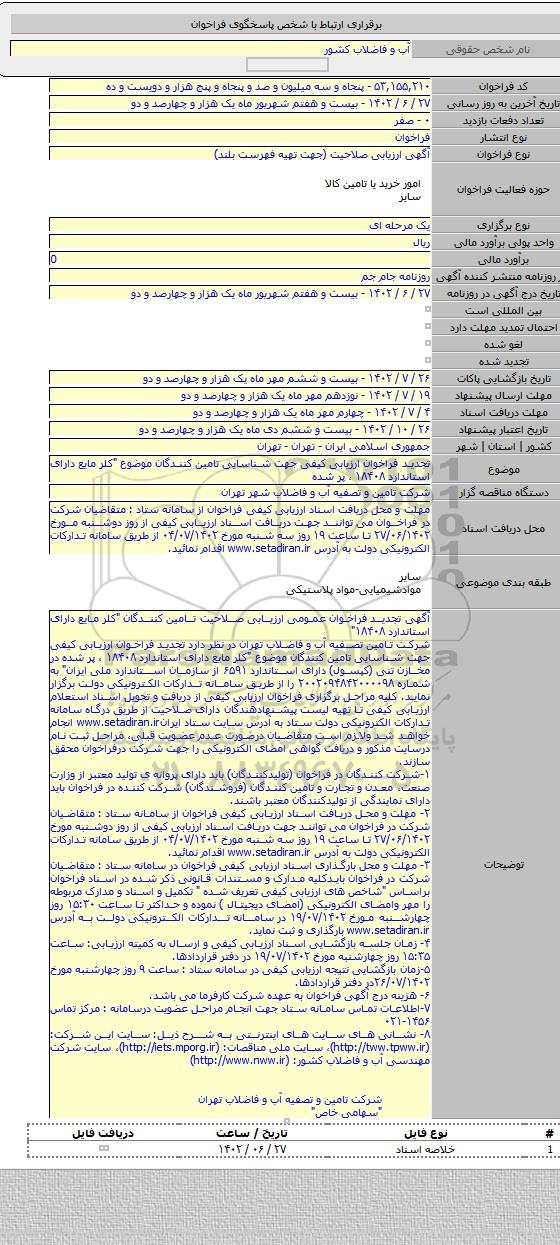 برقراری ارتباط با شخص پاسخگوی فراخوان
نام شخص حقوقی آب و فاضلاب کشور
کد فراخوان ۵۳,۱۵۵,۲۱۰ - پنجاه و سه میلیون و صد و پنجاه و پنج هزار و دویست و ده
تاریخ آخرین به روز رسانی ۲۷ / ۶ / ۱۴۰۲ - بیست و هفتم شهریور ماه یک هزار و چهارصد و دو
تعداد دفعات بازدید ۰ - صفر
نوع انتشار فراخوان
نوع فراخوان آگهی ارزیابی صلاحیت (جهت تهیه فهرست بلند)
حوزه فعالیت فراخوان امور خرید یا تامین کالا
سایر
نوع برگزاری یک مرحله ای
واحد پولی برآورد مالی ریال
برآورد مالی 0
روزنامه منتشر کننده آگهی روزنامه جام جم
تاریخ درج آگهی در روزنامه ۲۷ / ۶ / ۱۴۰۲ - بیست و هفتم شهریور ماه یک هزار و چهارصد و دو
بین المللی است
احتمال تمدید مهلت دارد
لغو شده
تجدید شده
تاریخ بازگشایی پاکات ۲۶ / ۷ / ۱۴۰۲ - بیست و ششم مهر ماه یک هزار و چهارصد و دو
مهلت ارسال پیشنهاد ۱۹ / ۷ / ۱۴۰۲ - نوزدهم مهر ماه یک هزار و چهارصد و دو
مهلت دریافت اسناد ۴ / ۷ / ۱۴۰۲ - چهارم مهر ماه یک هزار و چهارصد و دو
تاریخ اعتبار پیشنهاد ۲۶ / ۱۰ / ۱۴۰۲ - بیست و ششم دی ماه یک هزار و چهارصد و دو
کشور | استان | شهر جمهوری اسلامی ایران - تهران - تهران
موضوع تجدید فراخوان ارزیابی کیفی جهت شناسایی تامین کنندگان موضوع "کلر مایع دارای
استاندارد ۱۸۴۰۸ ، پر شده
دستگاه مناقصه گزار شرکت تامین و تصفیه آب و فاضلاب شهر تهران
محل دریافت اسناد مهلت و محل دریافت اسناد ارزیابی کیفی فراخوان از سامانه ستاد : متقاضیان شرکت
در فراخوان می توانند جهت دریافت اسناد ارزیابی کیفی از روز دوشنبه مورخ
۲۷/۰۶/۱۴۰۲ تا ساعت ۱۹ روز سه شنبه مورخ ۰۴/۰۷/۱۴۰۲ از طریق سامانه تدارکات
الکترونیکی دولت به آدرس www.setadiran.ir اقدام نمائید.
طبقه بندی موضوعی سایر
موادشیمیایی-مواد پلاستیکی
توضیحات
آگهی تجدید فراخوان عمومی ارزیابی صلاحیت تامین کنندگان "کلر مایع دارای
استاندارد ۱۸۴۰۸"
شرکت تامین تصفیه آب و فاضلاب تهران در نظر دارد تجدید فراخوان ارزیابی کیفی
جهت شناسایی تامین کنندگان موضوع "کلر مایع دارای استاندارد ۱۸۴۰۸ ، پر شده در
مخازن تنی (کپسول) دارای استاندارد ۶۵۹۱ از سازمان استاندارد ملی ایران" به
شماره ۲۰۰۲۰۹۴۸۴۲۰۰۰۰۹۸ را از طریق سامانه تدارکات الکترونیکی دولت برگزار
نماید. کلیه مراحل برگزاری فراخوان ارزیابی کیفی از دریافت و تحویل اسناد استعلام
ارزیابی کیفی تا تهیه لیست پیشنهاددهندگان دارای صلاحیت از طریق درگاه سامانه
تدارکات الکترونیکی دولت ستاد به آدرس سایت ستاد ایران www.setadiran.ir انجام
خواهد شد ولازم است متقاضیان درصورت عدم عضویت قبلی، مراحل ثبت نام
درسایت مذکور و دریافت گواهی امضای الکترونیکی را جهت شرکت درفراخوان محقق
سازند.
۱-شرکت کنندگان در فراخوان (تولیدکنندگان) باید دارای پروانه ی تولید معتبر از وزارت
صنعت، معدن و تجارت و تامین کنندگان (فروشندگان) شرکت کننده در فراخوان باید
دارای نمایندگی از تولیدکنندگان معتبر باشند.
۲- مهلت و محل دریافت اسناد ارزیابی کیفی فراخوان از سامانه ستاد : متقاضیان
شرکت در فراخوان می توانند جهت دریافت اسناد ارزیابی کیفی از روز دوشنبه مورخ
۲۷/۰۶/۱۴۰۲ تا ساعت ۱۹ روز سه شنبه مورخ ۰۴/۰۷/۱۴۰۲ از طریق سامانه تدارکات
الکترونیکی دولت به آدرس www.setadiran.ir اقدام نمائید.
۳- مهلت و محل بارگذاری اسناد ارزیابی کیفی فراخوان در سامانه ستاد : متقاضیان
شرکت در فراخوان بایدکلیه مدارک و مستندات قانونی ذکر شده در اسناد فراخوان
براساس "شاخص های ارزیابی کیفی تعریف شده " تکمیل و اسناد و مدارک مربوطه
را مهر وامضای الکترونیکی (امضای دیجیتال ) نموده و حداکثر تا ساعت ۱۵:۳۰ روز
چهارشنبه مورخ ۱۹/۰۷/۱۴۰۲ در سامانه تدارکات الکترونیکی دولت به آدرس
www.setadiran.ir بارگذاری و ثبت نماید.
۴- زمان جلسه بازگشایی اسناد ارزیابی کیفی و ارسال به کمیته ارزیابی: ساعت
۱۵:۳۵ روز چهارشنبه مورخ ۱۹/۰۷/۱۴۰۲ در دفتر قراردادها.
۵-زمان بازگشایی نتیجه ارزیابی کیفی در سامانه ستاد : ساعت ۹ روز چهارشنبه مورخ
۲۶/۰۷/۱۴۰۲در دفتر قراردادها.
۶- هزینه درج آگهی فراخوان به عهده شرکت کارفرما می باشد.
۷-اطلاعات تماس سامانه ستاد جهت انجام مراحل عضویت درسامانه : مرکز تماس
۰۲۱-۱۴۵۶
۸- نشانی های سایت های اینترنتی به شرح ذیل: سایت این شرکت:
(http://tww.tpww.ir)، سایت ملی مناقصات: (http://iets.mporg.ir)، سایت شرکت
مهندسی آب و فاضلاب کشور: (http://www.nww.ir)
شرکت تامین و تصفیه آب و فاضلاب تهران
"سهامی خاص"
# نوع فایل تاریخ / ساعت دریافت فایل
1 خلاصه اسناد ۲۷ / ۰۶ / ۱۴۰۲